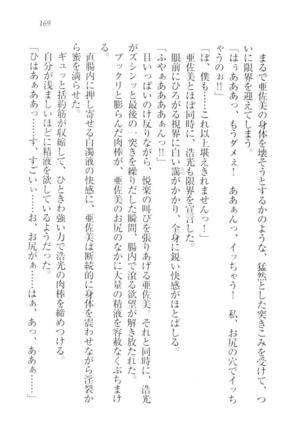 169
まるで亜佐美の身体を壊そうとするかのような、猛然とした突きこみを受けて、つ
いに限界を迎えてしまう。
「はぅああっ、もうダメぇ！　ああぁんっ、イッちゃう！　私、お尻の穴でイッち
ゃうのぉ!!」
「ぼ、僕も……これ以上堪えきれませんっ！」
亜佐美とほぼ同時に、浩光も限界を宣言した。
眼前にひろがる視界に白い靄がかかり、全身に鋭い快感がほとばしる。
「ふやぁあああぁんっ!!」
目いっぱいのけ反りながら、悦楽の叫びを張りあげる亜佐美。それと同時に、浩光
がズシンッと最後の一突きを繰りだした瞬間、腸内で滾る欲望が解き放たれた。
プックリと膨らんだ肉棒が、亜佐美のお尻のなかに大量の精液を容赦なくぶちまけ
る。
直腸内に押し寄せる白濁液の快感に、亜佐美は断続的に身体を震わせながら淫裂か
ら蜜を滴らせた。
ギュッと括約筋が収縮して、ひときわ強い力で浩光の肉棒を締めつける。
自分が浅ましいほどに精液を欲しているようだった。
「ひはああああっ……す、すごいぃ……お、お尻がぁ……はぁ、あっ、ああぁ……